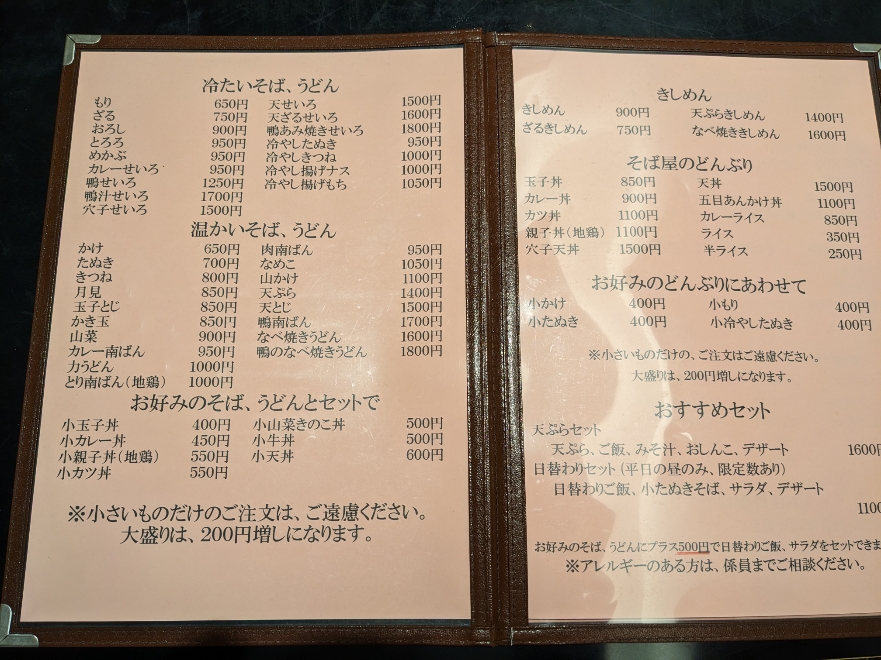 冷たいそば、うどん
もり 650円 天せいろ 1500円
ざる 750円 天ざるせいろ 1600円
おろし 900円 鴨あみ焼きせいろ 1800円
とろろ 950円 冷やしたぬき 950円
めかぶ 950円 冷やしきつね 1000円
カレーせいろ 950円 冷やし揚げナス 1000円
鴨せいろ 1250円 冷やし揚げもち 1050円
鴨汁せいろ 1700円
穴子せいろ 1500円
温かいそば、うどん
かけ 650円 肉南ばん 950円
たぬき 700円 なめこ 1050円
きつね 800円 山かけ 1100円
月見 850円 天ぷら 1400円
玉子とじ 850円 天とじ 1500円
かき玉 850円 鴨南ばん 1700円
山菜 900円 なべ焼きうどん 1600円
カレー南ばん 950円 鴨のなべ焼きうどん 1800円
力うどん 1000円
とり南ばん（地鶏） 1000円
お好みのそば、うどんとセットで
小玉子丼 400円 小山菜きのこ丼 500円
小カレー丼 450円 小牛丼 500円
小親子丼（地鶏） 550円 小天丼 600円
小カツ丼 550円
※小さいものだけのご注文は、ご遠慮ください。
大盛りは、200円増しになります。
きしめん
きしめん 900円 天ぷらきしめん 1400円
ざるきしめん 750円 なべ焼ききしめん 1600円
そば屋のどんぶり
玉子丼 850円 天丼 1500円
カレー丼 900円 五目あんかけ丼 1100円
カツ丼 1100円 カレーライス 850円
親子丼（地鶏） 1100円 ライス 350円
穴子天丼 1500円 半ライス 250円
お好みのどんぶりにあわせて
小かけ 400円 小もり 400円
小たぬき 400円 小冷やしたぬき 400円
※小さいものだけの、ご注文はご遠慮ください。
大盛りは、200円増しになります。
おすすめセット
天ぷらセット
天ぷら、ご飯、みそ汁、おしんこ、デザート 1600円
日替わりセット（平日の昼のみ、限定数あり）
日替わりご飯、小たぬきそば、サラダ、デザート
1100
お好みのそば、うどんにプラス500円で日替わりご飯、サラダをセットできま
※アレルギーのある方は、係員までご相談ください。